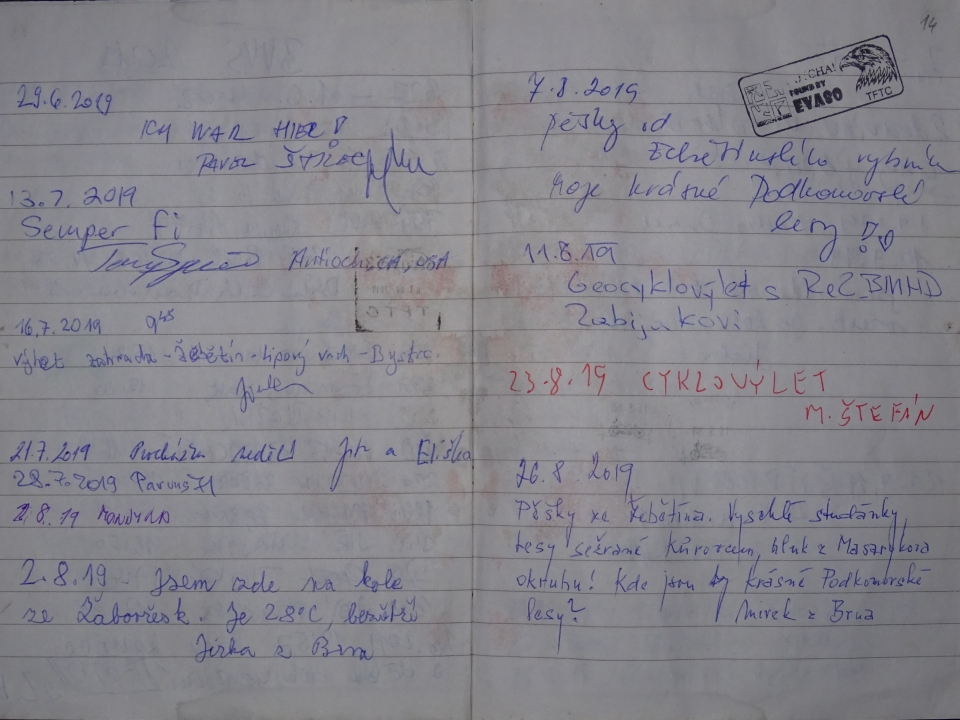 29.6.2019
ICH WAR HIER!
PAVEL
13.7.2019
Semper Fi
Antioch, CA, USA
TFTC
16.7.2019 9 45
výlet zahrada - Žebětín - Lipový vrch - Bystrc.
21.7.2019 a Eliška
28.7.2019
2.8.19
2.8.19 Jsem zde na kole
ze Žabovřesk. Je 28°C, bezvětří
Jirka z Brna
14
7.8.2019
FOUND BY
EVA80
TFTC
pěšky od
rybníka
Moje krásné Podkomorské
lesy
11.8.19
Geocyklovýlet s ReZ_BMHD
23.8.19 CYKLOVÝLET
M. ŠTEFÁN
26.8.2019
Pěšky ze Žebětína. Vyschlé studánky,
lesy sežrané kůrovcem, hluk z Masarykova
okruhu! Kde jsou ty krásné Podkomorské
lesy? Mirek z Brna